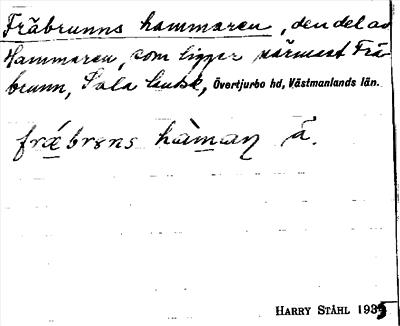 Fräbrunns hammaren, den del av
Hammaren, som ligger närmast Frä-
brunn, Sala landsk, Övertjurbo hd, Västmanlands län.
fräbrons hàman
HARRY STÅHL 1935